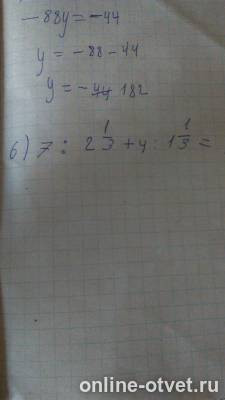 -88y = -44
y = -88 - 44
y = - 182
6) 7 : 2 1/3 + y : 1 1/3 =
online-otvet.ru